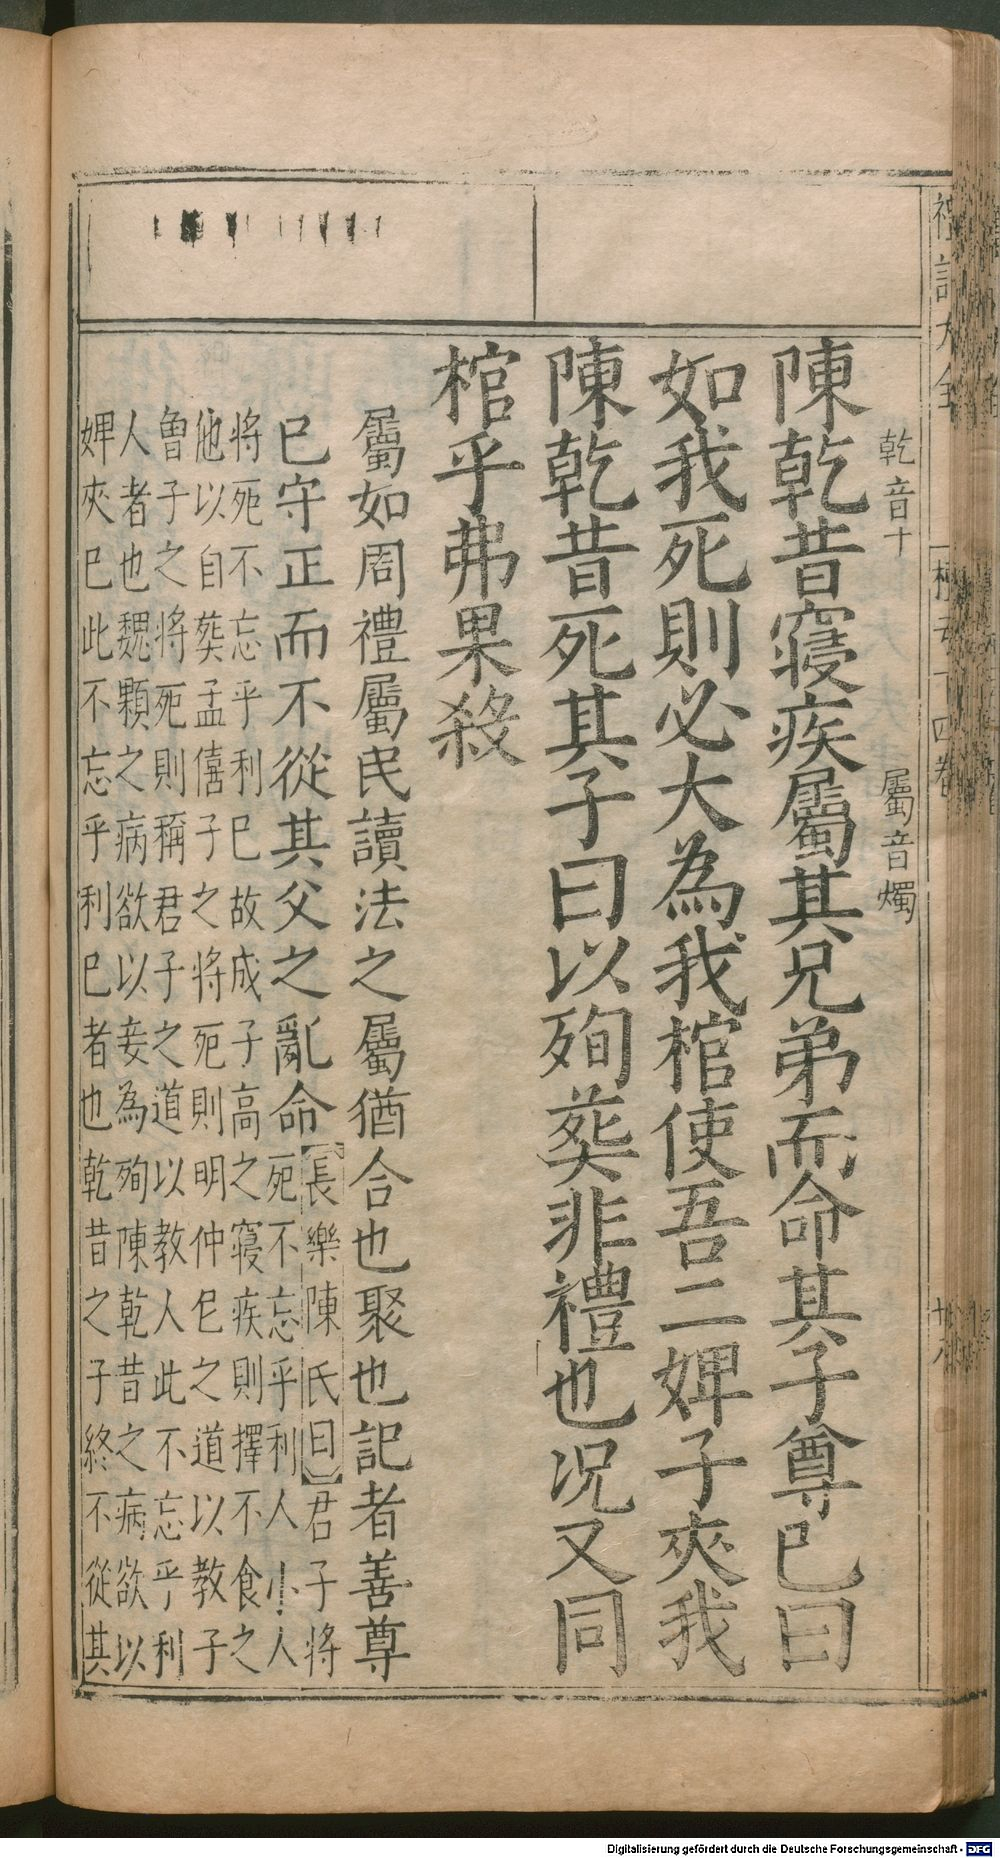 禮記大全
檀弓下四卷
廿八
乾音十 屬音燭
陳乾昔寢疾屬其兄弟而命其子尊已曰
如我死則必大為我棺使吾二婢子夾我
陳乾昔死其子曰以殉葬非禮也况又同
棺乎弗果殺
屬如周禮屬民讀法之屬猶合也聚也記者善尊
已守正而不從其父之亂命
長樂陳氏曰君子將
死不忘乎利人小人
將死不忘乎利已故成子高之寢疾則擇不食之
他以自葬孟僖子之將死則明仲尼之道以教子
魯子之將死則稱君子之道以教人此不忘乎利
人者也魏顆之病欲以妾為殉陳乾昔之病欲以
婢夾已此不忘乎利已者也乾昔之子終不從其
Digitalisierung gefördert durch die Deutsche Forschungsgemeinschaft - DFG